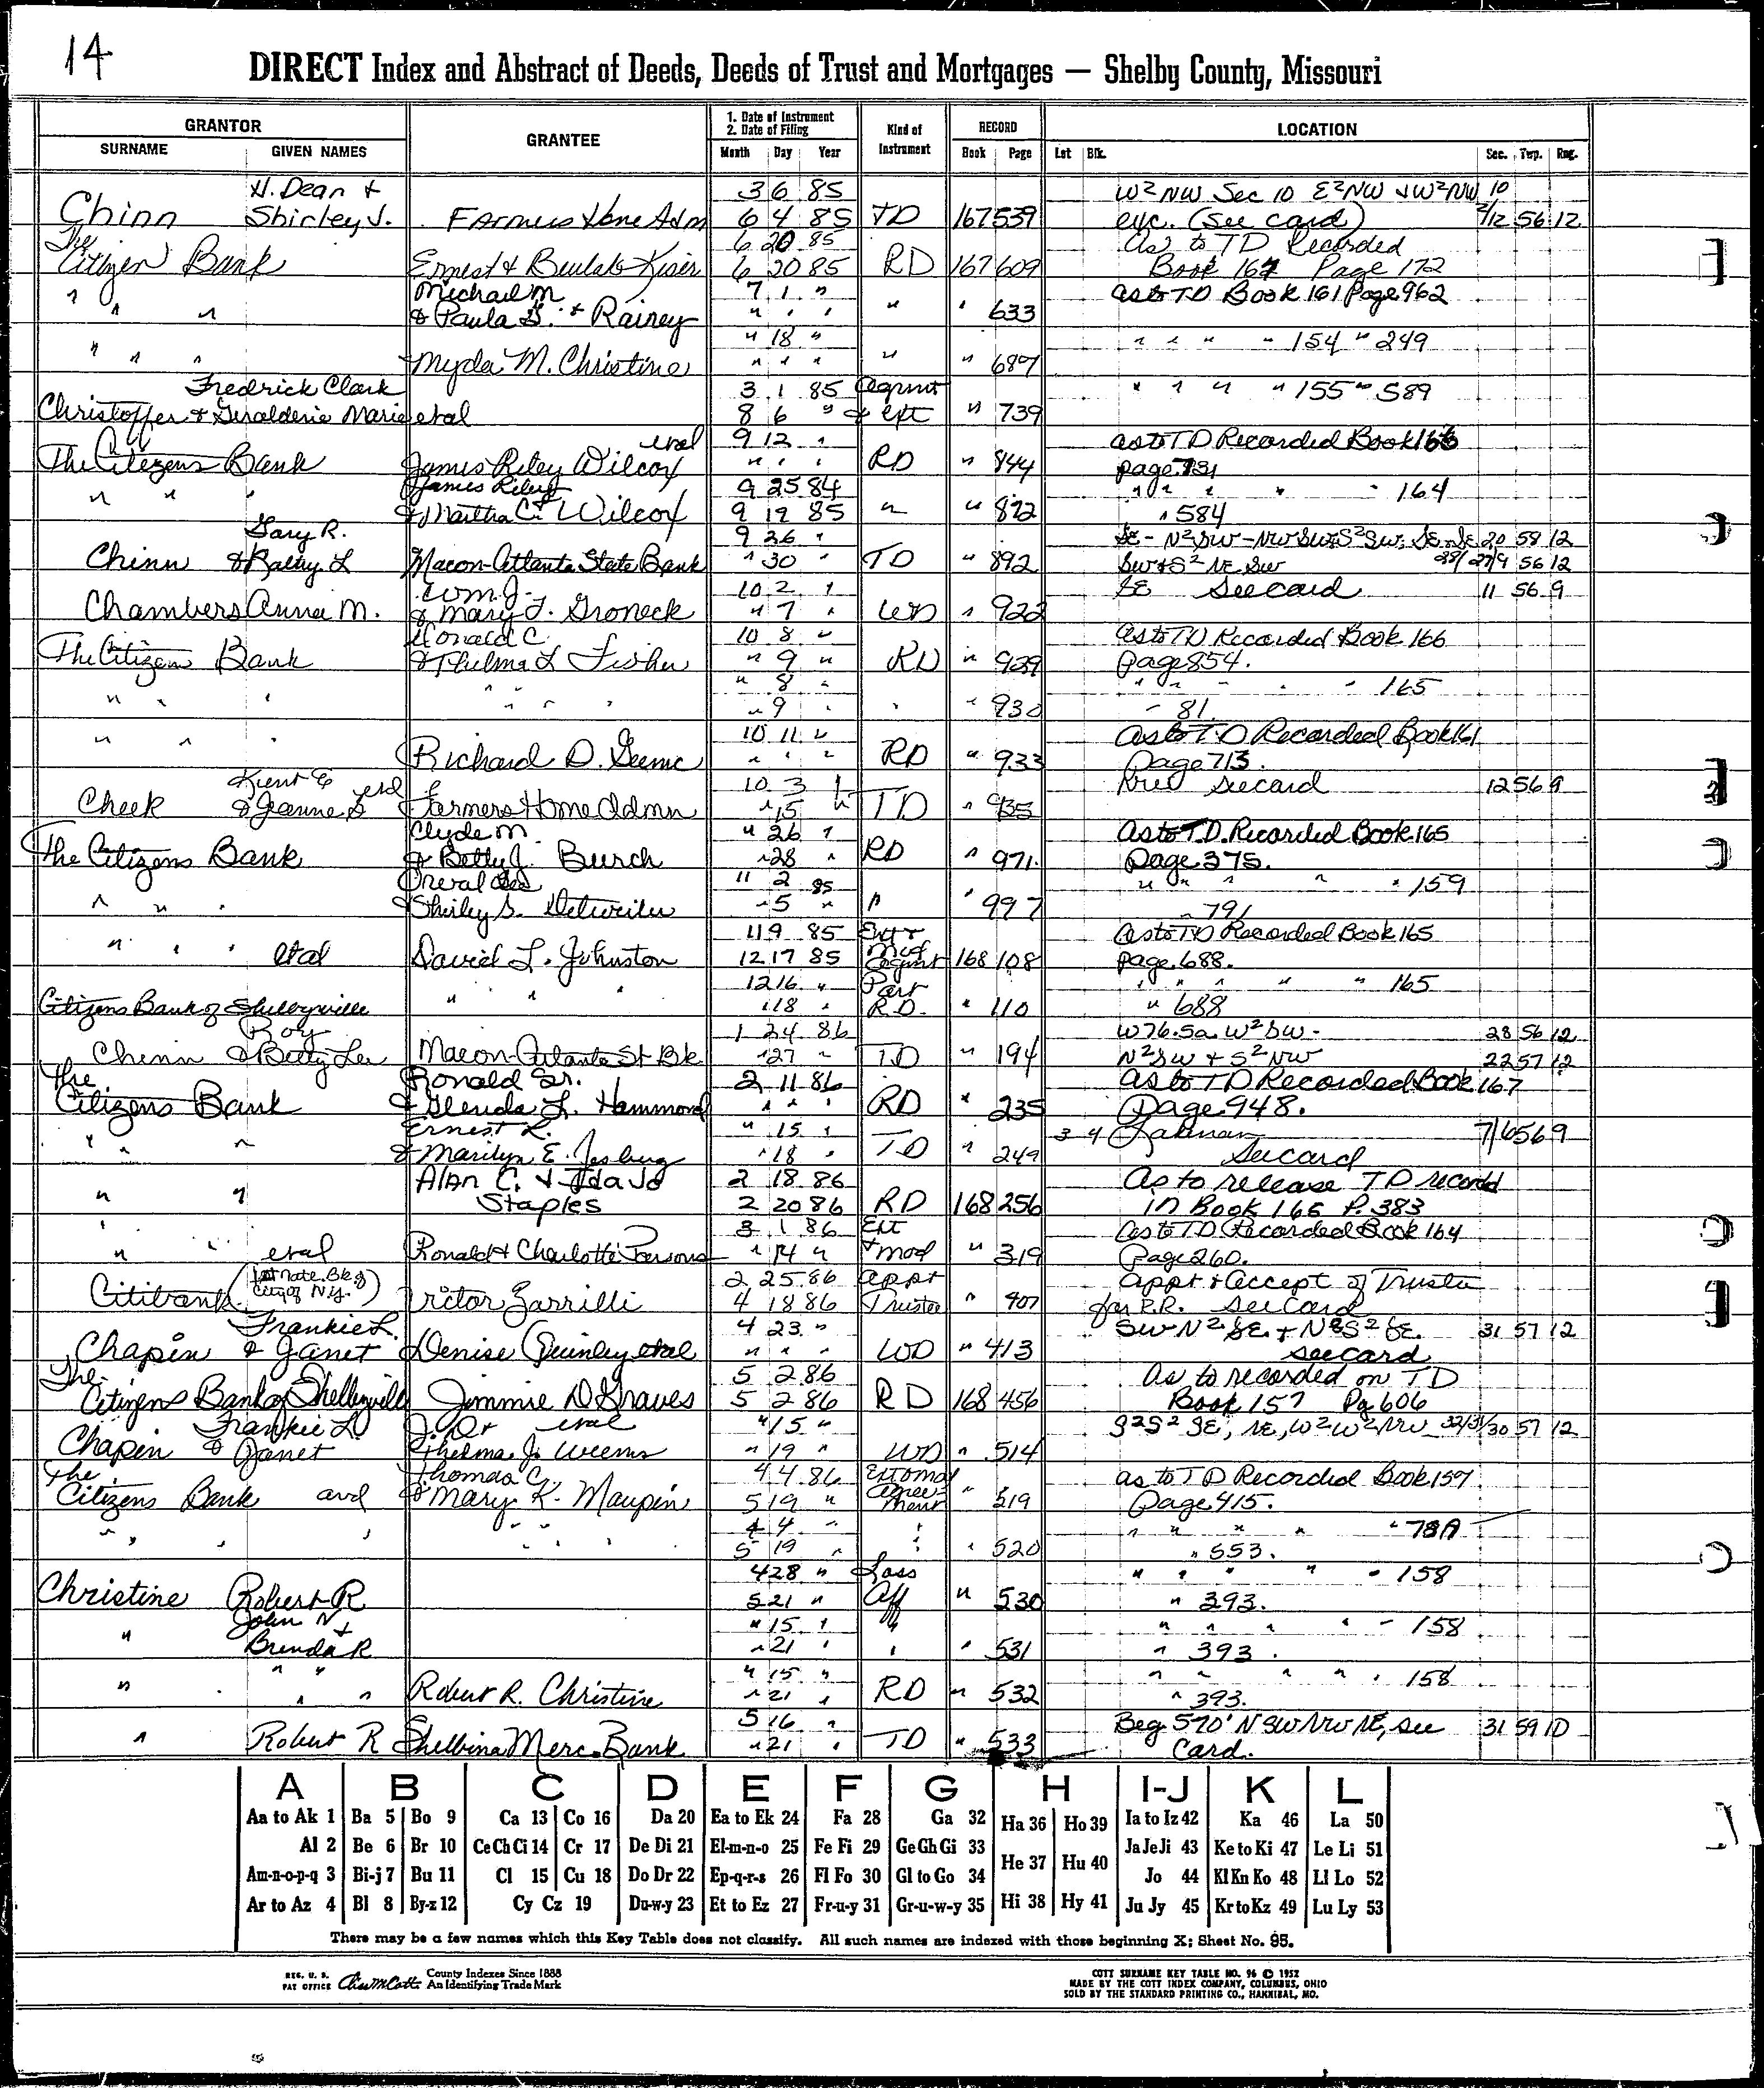 14
DIRECT Index and Abstract of Deeds, Deeds of Trust and Mortgages — Shelby County, Missouri
GRANTOR GRANTEE 1. Date of Instrument 2. Date of Filing Kind of Instrument RECORD LOCATION
SURNAME GIVEN NAMES Month Day Year Book Page Lot Blk. Sec. Twp. Rng.
H. Dean & 3 6 85 W² NW Sec 10 E² NW & W² NW 10
Chinn Shirley J. Farmers Home Adm 6 4 85 TD 167 539 etc. (see card) 2/12 56 12
The 6 20 85 As to TD Recorded
Citizen Bank Ernest & Beulah Kiser 6 20 85 RD 167 609 Book 167 Page 172
" Michael M 7 1 " as to TD Book 161 Page 962
" " & Paula G. & Rainey " " " " " 633
" 18 " " " " " 154 " 249
" " " Myda M. Christine " " " " " 687
Fredrick Clark 3 1 85 Agrmt " " " " 155 " 589
Christoffer & Geralderie Marie etal 8 6 " & Ext " 739
etal 9 12 " as to TD Recorded Book 166
The Citizens Bank James Riley Wilcox " " " RD " 844 page 731
James Riley 9 25 84 " " " " " 164
" " " & Martha C. Wilcox 9 19 85 " " 872 " 584
Gary R. 9 26 " SE - N² SW - NW SW & S² SW, SE 20 58 12
Chinn & Kathy L Macon-Atlanta State Bank " 30 " TD " 892 SW & S² NE SW 56 12
Wm. J. 10 2 " SE See card 11 56 9
Chambers Anna M. & Mary F. Groneck " 7 " WD " 922
Donald C. 10 8 " As to TD Recorded Book 166
The Citizen Bank & Thelma L Fisher " 9 " RD " 929 Page 854.
" 8 " " " " " " 165
" " " " " " " " 9 " " " 930 " 81.
10 11 " As to TD Recorded Book 161
" " " Richard D. " " " RD " 933 Page 713.
Kient E 10 3 " see card 12 56 9
Cheek & Jeanne S etal Farmers Home Admn " 15 " TD " 935
Clyde M. " 26 " As to T.D. Recorded Book 165
The Citizens Bank & Betty J. Burch " 28 " RD " 971. Page 375.
Orval 11 2 85 " " " " " 159
" " " & Shirley S. Detweiler " 5 " " " 997 " 791
11 9 85 Ext & As to TD Recorded Book 165
" " " etal David L. Johnston 12 17 85 Mod Agrmt 168 108 page 688.
12 16 " Part " " " " " 165
Citizens Bank of Shelbyville " " " " 18 " R.D. " 110 " 688
Roy 1 24 86 W 76.5a. W² SW - 28 56 12
Chinn & Betty Lee Macon-Atlanta St Bk " 27 " TD " 194 N² SW & S² NW 22 57 12
The Ronald Sr. 2 11 86 As to TD Recorded Book 167
Citizens Bank & Glenda L. Hammond " " " RD " 235 Page 948.
Ernest L. " 15 " 3 4 7/6 56 9
" " " & Marilyn E. " 18 " TD " 249 See card
Alan C. & Ida Jo 2 18 86 As to release TD record
" " Staples 2 20 86 RD 168 256 in Book 165 P. 383
" " 3 1 86 Ext As to TD Recorded Book 164
" etal Ronald & Charlotte Parsons " 14 " & mod " 319 Page 260.
(1st Nate. Bk of 2 25 86 Appt Appt & Accept of Trustee
Citibank City of N.Y.) Victor Zarrilli 4 18 86 Trustee " 407 for R.R. see card
Frankie L. 4 23 " SW N² SE & N² S² SE. 31 57 12
Chapin & Janet Denise Quinley etal " " " WD " 413 see card
The 5 2 86 As to recorded on TD
Citizens Bank of Shelbyville Jimmie D Graves 5 2 86 RD 168 456 Book 157 Pg 606
Frankie L. J. D. & etal " 15 " S² S² SE, NE, W² W² NW 32/31/30 57 12
Chapin & Janet Thelma J. Weems " 19 " WD " 514
The Thomas C. 4 4 86 Ext & mod as to TD Recorded Book 157
Citizens Bank and & Mary K. Maupin 5 19 " Agreement " 519 Page 415.
4 4 " " " " " " 78A
" " " " " " " 5 19 " " " 520 " 553.
4 28 " Loss " " " " " 158
Christine Robert R 5 21 " Aff " 530 " 393.
John N & " 15 " " " " " " " 158
" Brenda R " 21 " " " 531 " 393.
" " " 15 " " " " " " 158
" " " Robert R. Christine " 21 " RD " 532 " 393.
5 16 " Beg 570' N SW NW NE, see 31 59 10
" Robert R Shelbina Merc. Bank " 21 " TD " 533 Card.
A B C D E F G H I-J K L
Aa to Ak 1 Ba 5 Bo 9 Ca 13 Co 16 Da 20 Ea to Ek 24 Fa 28 Ga 32 Ha 36 Ho 39 Ia to Iz 42 Ka 46 La 50
Al 2 Be 6 Br 10 Ce Ch Ci 14 Cr 17 De Di 21 El-m-n-o 25 Fe Fi 29 Ge Gh Gi 33 He 37 Hu 40 Ja Je Ji 43 Ke to Ki 47 Le Li 51
Am-n-o-p-q 3 Bi-j 7 Bu 11 Cl 15 Cu 18 Do Dr 22 Ep-q-r-s 26 Fl Fo 30 Gl to Go 34 Jo 44 Kl Kn Ko 48 Ll Lo 52
Ar to Az 4 Bl 8 By-z 12 Cy Cz 19 Du-w-y 23 Et to Ez 27 Fr-u-y 31 Gr-u-w-y 35 Hi 38 Hy 41 Ju Jy 45 Kr to Kz 49 Lu Ly 53
There may be a few names which this Key Table does not classify. All such names are indexed with those beginning X; Sheet No. 95.
REG. U. S. PAT OFFICE County Indexes Since 1888 An Identifying Trade Mark
COTT SURNAME KEY TABLE NO. 96 © 1952
MADE BY THE COTT INDEX COMPANY, COLUMBUS, OHIO
SOLD BY THE STANDARD PRINTING CO., HANNIBAL, MO.